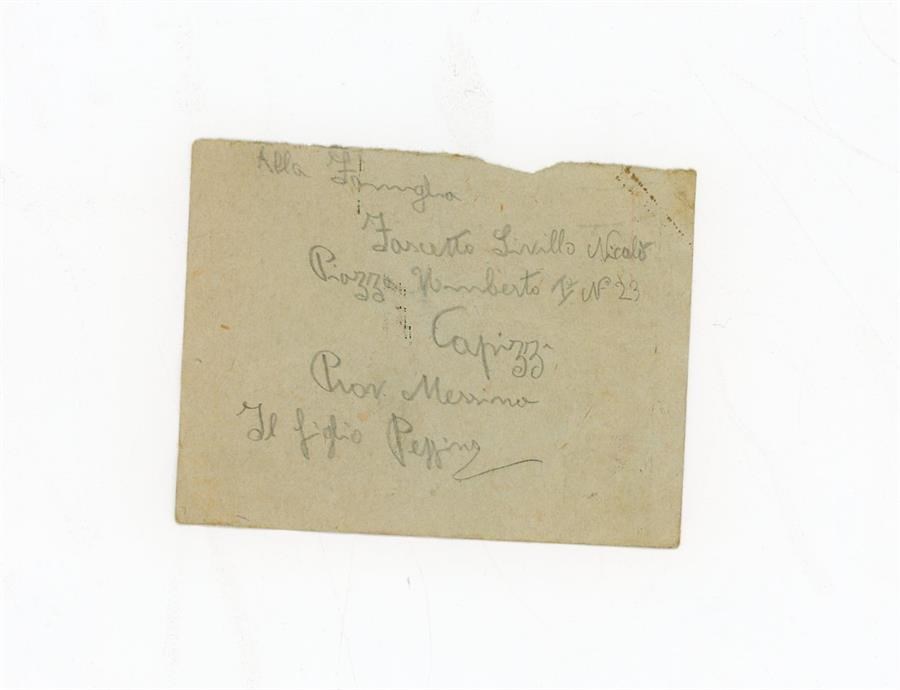 Alla Famiglia
Fascetto Livillo Nicolò
Piazza Umberto 1° N° 23
Capizzi
Prov. Messina
Il figlio Peppino